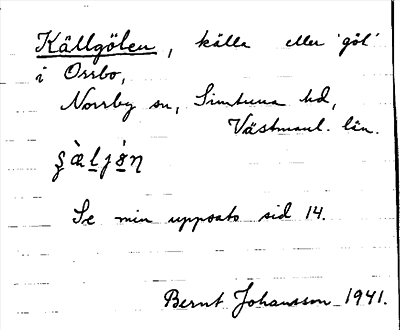 Källgölen, källa eller 'göl'
i Orrbo,
Norrby sn, Simtuna hd,
Västmanl. län.
Se min uppsats sid 14.
Bernt Johansson 1941.